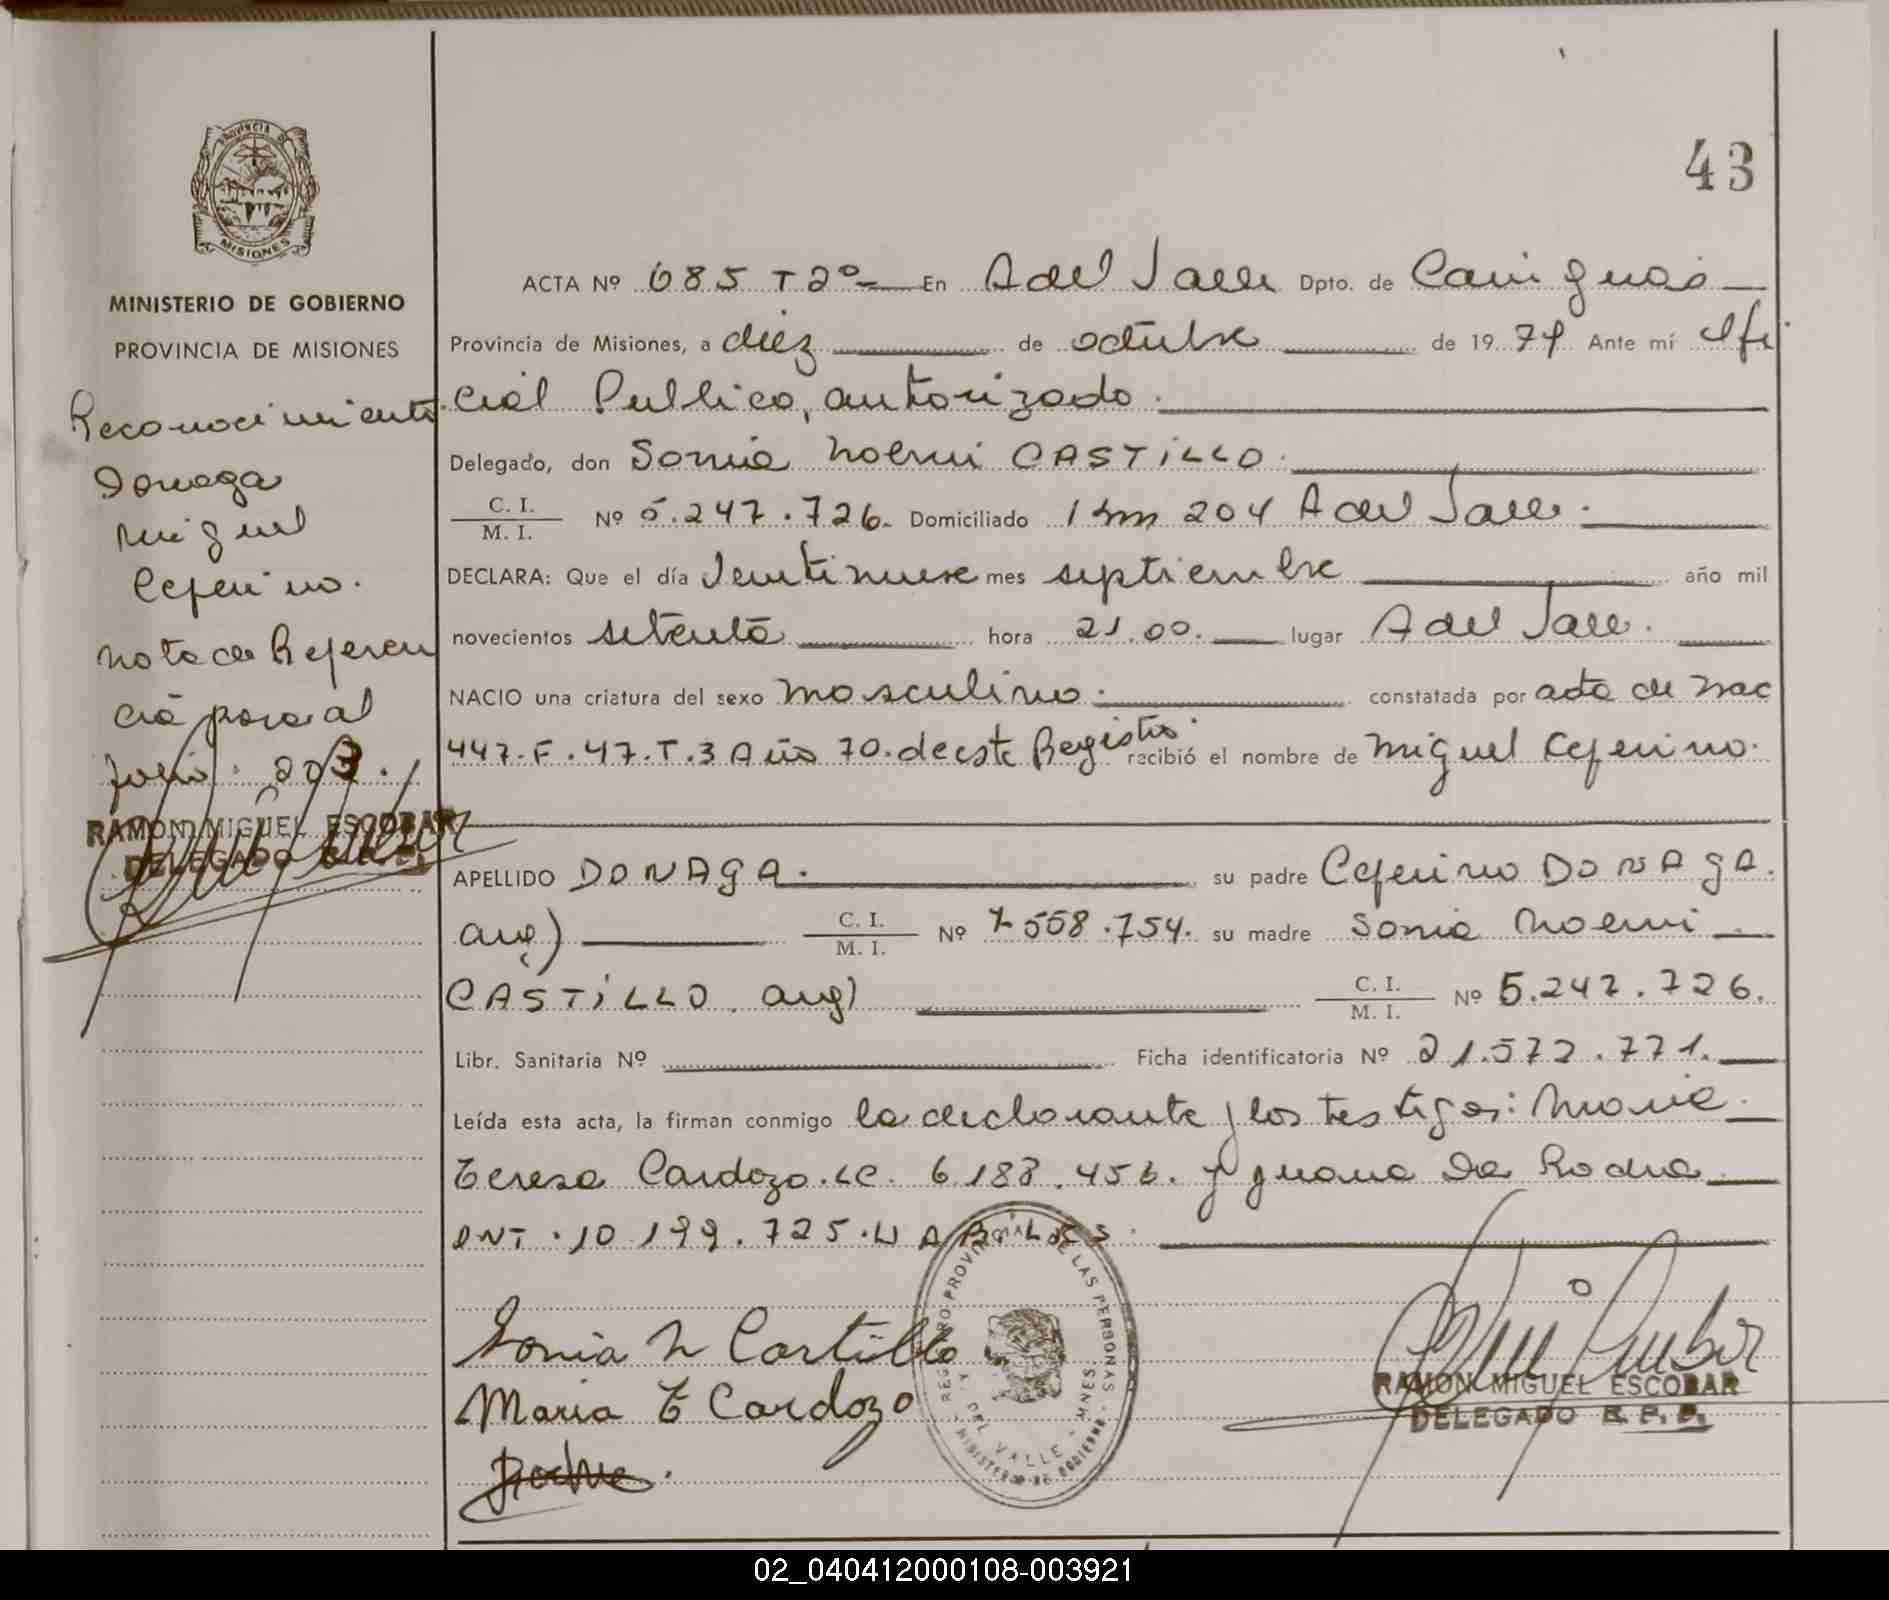 43
PROVINCIA DE
MISIONES
MINISTERIO DE GOBIERNO
PROVINCIA DE MISIONES
Reconocimiento
Donaga
Miguel
Ceferino.
Nota de Referen
cia para al
folio. 203.
RAMON MIGUEL ESCOBAR
DELEGADO R. P. P.
ACTA Nº 685 T 2º En A del Valle Dpto. de Cainguas
Provincia de Misiones, a diez de octubre de 1974 Ante mí Ofi
cial Publico, autorizado.
Delegado, don Sonia Noemi CASTILLO.
C. I.
M. I. Nº 5.247.726. Domiciliado Km 204 A del Valle.
DECLARA: Que el día Veintinueve mes septiembre año mil
novecientos setenta hora 21.00. lugar A del Valle.
NACIO una criatura del sexo masculino. constatada por acta de Nac
447.F.47.T.3 Año 70. de este Registro. recibió el nombre de Miguel Ceferino.
APELLIDO DONAGA. su padre Ceferino DONAGA.
arg) C. I.
M. I. Nº 7.558.754. su madre Sonia Noemi
CASTILLO. arg) C. I.
M. I. Nº 5.247.726.
Libr. Sanitaria Nº Ficha identificatoria Nº 21.572.771.
Leída esta acta, la firman conmigo la declarante y los testigos: Maria
Teresa Cardozo. LC. 6.183.456. y Juana Da Rocha
DNI. 10.199.725. HABILES.
Sonia N Castillo
Maria T Cardozo
REGISTRO PROVINCIAL DE LAS PERSONAS
A. DEL VALLE - MNES
MINISTERIO DE GOBIERNO
RAMON MIGUEL ESCOBAR
DELEGADO R. P. P.
02_040412000108-003921